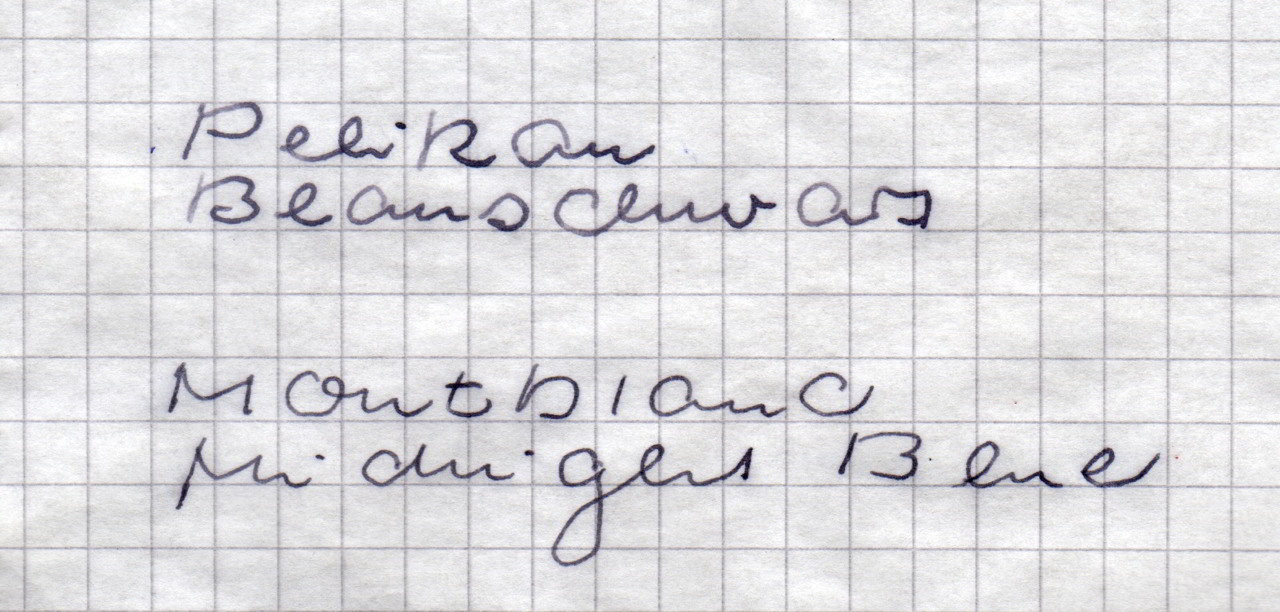 Pelikan
Blauschwarz
Montblanc
Midnight Blue